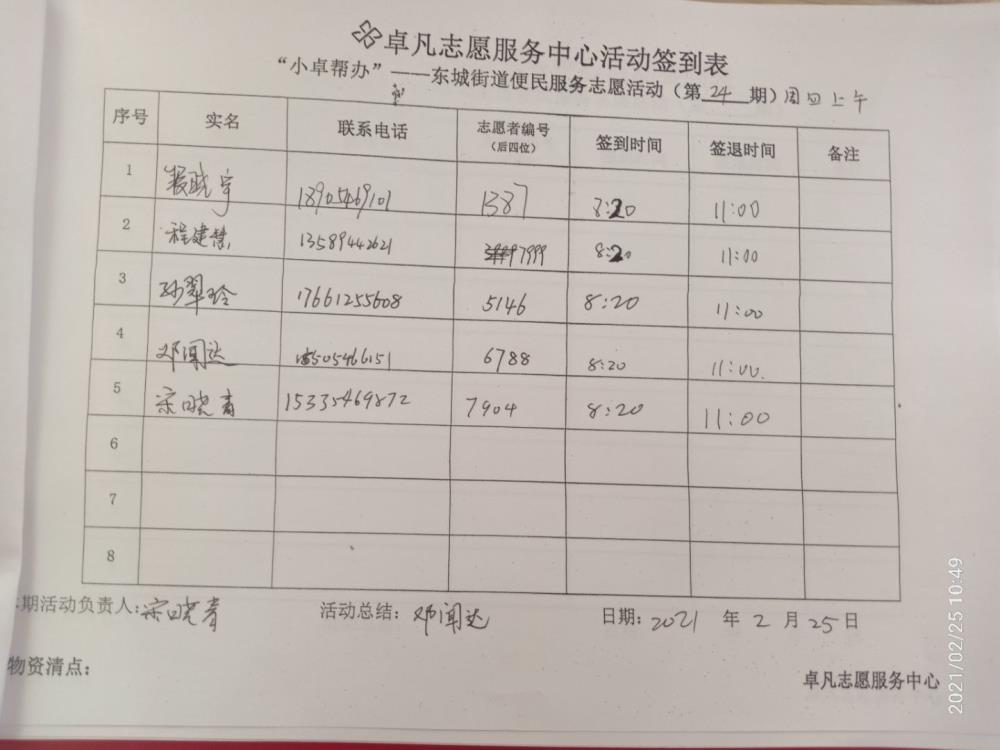 卓凡志愿服务中心活动签到表
“小卓帮办”——东城街道便民服务志愿活动（第 24 期）周四上午
序号 实名 联系电话 志愿者编号（后四位） 签到时间 签退时间 备注
1 晓宇 18905469101 1387 8:20 11:00
2 程建慧 13589442621 7999 8:20 11:00
3 孙翠玲 17661255608 5146 8:20 11:00
4 邓闻达 6788 8:20 11:00.
5 宋晓青 15335469872 7904 8:20 11:00
6
7
8
期活动负责人：宋晓青 活动总结：邓闻达 日期：2021 年 2 月 25 日
物资清点：
卓凡志愿服务中心
2021/02/25 10:49